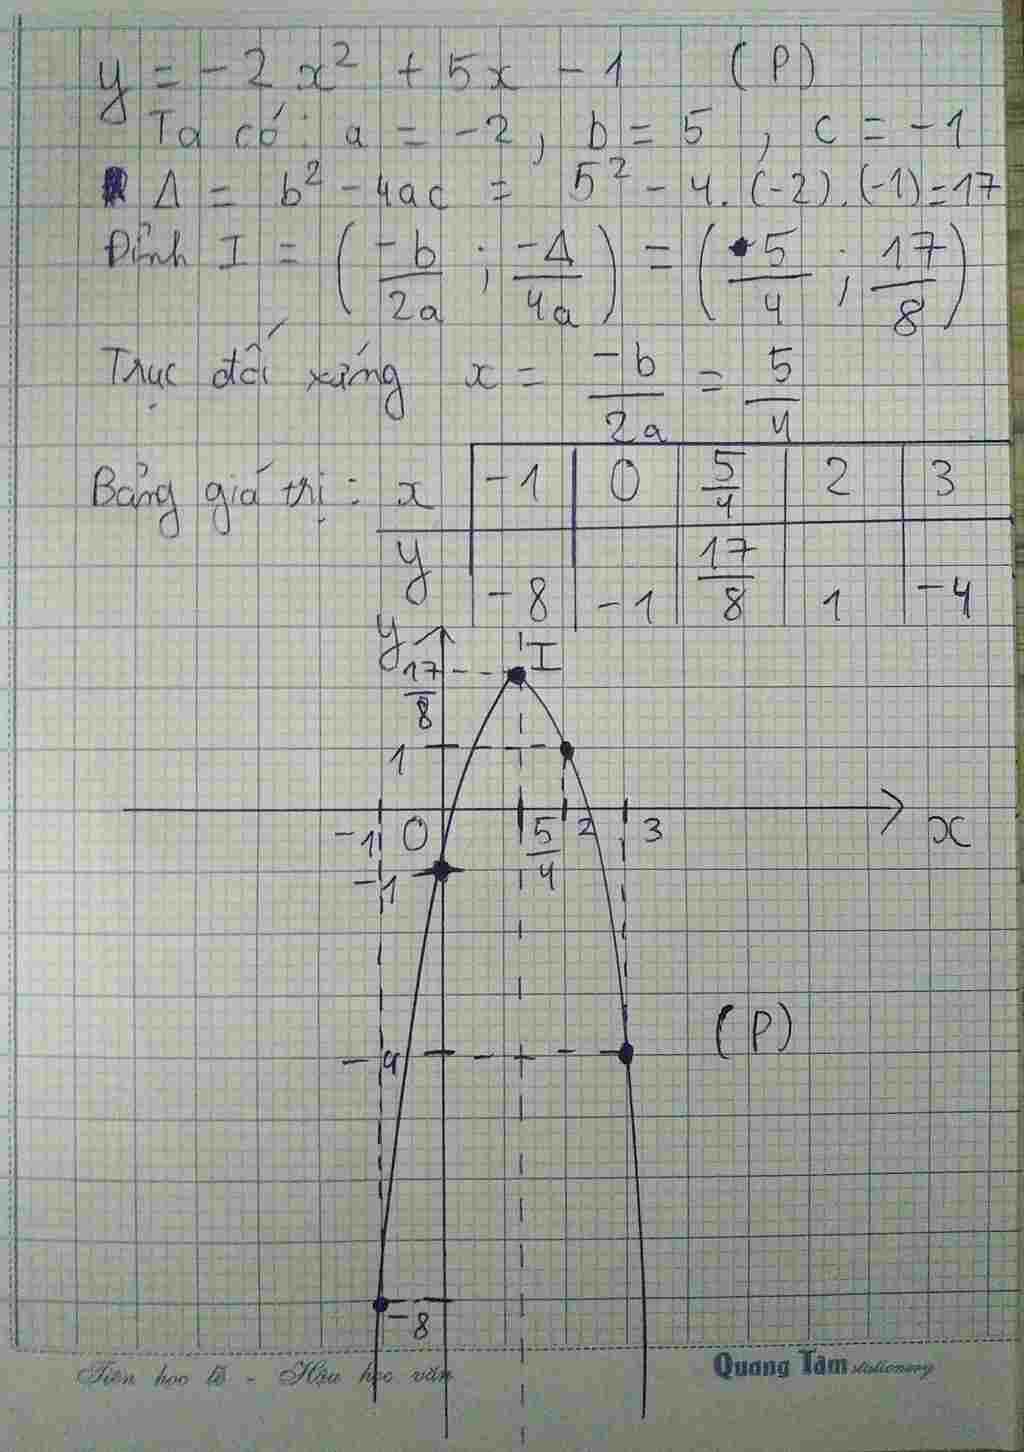 y = -2x² + 5x - 1 (P)
Ta có: a = -2, b = 5, c = -1
Δ = b² - 4ac = 5² - 4.(-2).(-1)=17
Đỉnh I = (-b/2a ; -Δ/4a) = (5/4 ; 17/8)
Trục đối xứng x = -b/2a = 5/4
Bảng giá trị: x -1 0 5/4 2 3
y -8 -1 17/8 1 -4
y
17/8 I
1
-1 0 5/4 2 3 x
-1
-4 (P)
-8
Tiên học lễ - Hậu học văn Quang Tâm stationery